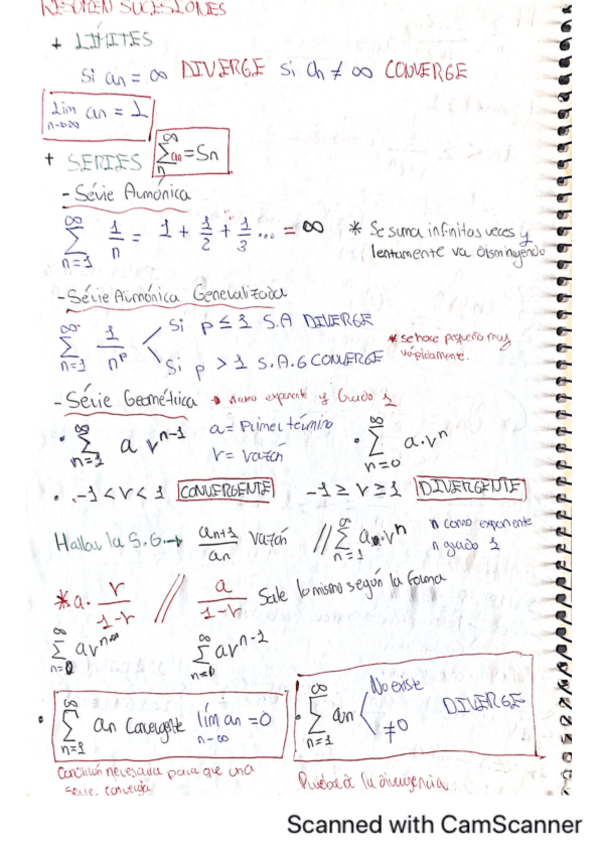 RESUMEN SUCESIONES
+ LÍMITES
Si an = ∞ DIVERGE si an ≠ ∞ CONVERGE
lim an = 1
n→∞
+ SERIES ∞ Σ n an = Sn
- Série Aumónica
∞ Σ n=1 1/n = 1 + 1/2 + 1/3 ... = ∞ * Se suma infinitas veces y
lentamente va disminuyendo
- Série Armónica Generalizada
∞ Σ n=1 1/n^p Si p ≤ 1 S.A DIVERGE
Si p > 1 S.A.G CONVERGE
* se hace pequeño muy
rápidamente.
- Série Geométrica → mismo exponente y Grado 1
• ∞ Σ n=1 a r^n-1 a = Primer término
r = razón
• ∞ Σ n=0 a.r^n
• -1 < r < 1 CONVERGENTE -1 ≥ r ≥ 1 DIVERGENTE
Hallar la S.G. → an+1/an razón // Σ n=1 a.r^n n como exponente
n grado 1
* a. r/1-r // a/1-r Sale lo mismo según la forma
∞ Σ ar^n ∞ Σ ar^n-1
• ∞ Σ n=1 an Convergente lím an = 0
n→∞
• ∞ Σ n=1 an No existe
≠0
DIVERGE
Condición necesaria para que una
serie, converja
Prueba de la divergencia
Scanned with CamScanner